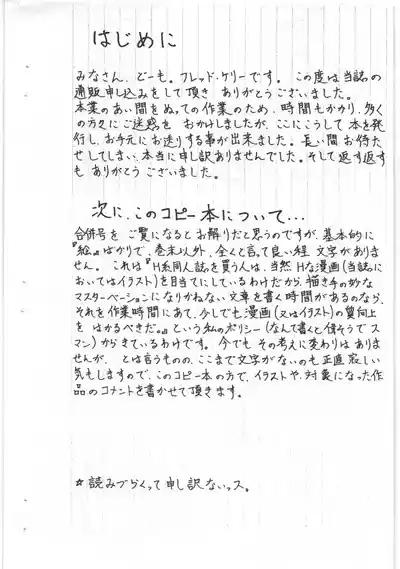 はじめに
みなさん、どーも。フレッド・ケリーです。この度は当誌の
通販申し込みをして頂き ありがとうございました。
本業のあい間をぬっての作業のため、時間もかかり、多く
の方々にご迷惑を おかけしましたが、ここにこうして本を発
行し、お手元にお送りする事が出来ました。長い間お待た
せしてしまい、本当に申し訳ありませんでした。そして返す返す
も ありがとうございました。
次に、このコピー本について...
合併号を ご覧になるとお解りだと思うのですが、基本的に
『絵』ばかりで、巻末以外、全くと言って良い程 文字がありま
せん。 これは『H系同人誌を買う人は、当然 Hな漫画(当誌に
おいてはイラスト)を目当てにしているわけだから、描き手の妙な
マスターベーションになりかねない 文章を書く時間があるのなら、
それを作業時間にあて、少しでも漫画(又はイラスト)の質向上
を はかるべきだ。』という私のポリシー(なんて書くと偉そうでス
マン)からきているわけです。 今でも その考えに変わりはありま
せんが、 とは言うものの、ここまで文字がないのも正直寂しい
気もしますので、このコピー本の方で、イラストや、対象になった作
品のコメントを書かせて頂きます。
☆読みづらくって申し訳ないっス。